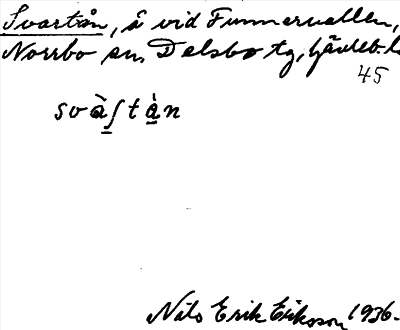 Svartån, å vid Funnervallen,
Norrbo sn, Delsbo tg, Gävleb. l.
45
svàʃtȧn
Nils Erik Eriksson 1936.